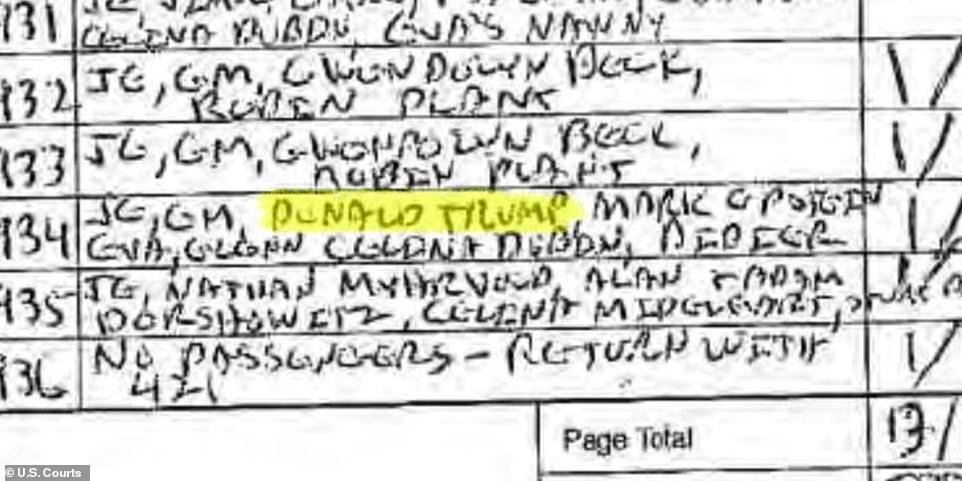 931
CELINA DUBIN, EVA'S NANNY
932 JE, GM, GWENDOLYN BECK,
ROBIN PLANT
933 JE, GM, GWENDOLYN BECK,
ROBIN PLANT
934 JE, GM, DONALD TRUMP MARK EPSTEIN
EVA, GLENN CELINA DUBIN, DIDIER
935 JE, NATHAN MYHRVOLD, ALAN + ADAM
DERSHOWITZ, CELINA MIDELFART,
936 NO PASSENGERS - RETURN WITH
421
Page Total 13/
© U.S. Courts